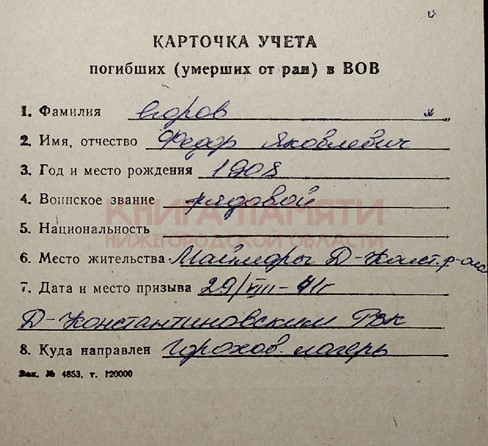 КАРТОЧКА УЧЕТА
погибших (умерших от ран) в ВОВ
1. Фамилия Егоров
2. Имя, отчество Федор Яковлевич
3. Год и место рождения 1908
4. Воинское звание рядовой
КНИГА ПАМЯТИ
5. Национальность
НИЖЕГОРОДСКОЙ ОБЛАСТИ
6. Место жительства Майморы Д-Конст. р-она
7. Дата и место призыва 29/VIII-41г
Д-Константиновским РВК
8. Куда направлен Горохов. лагерь
Зак. № 4853, т. 120000